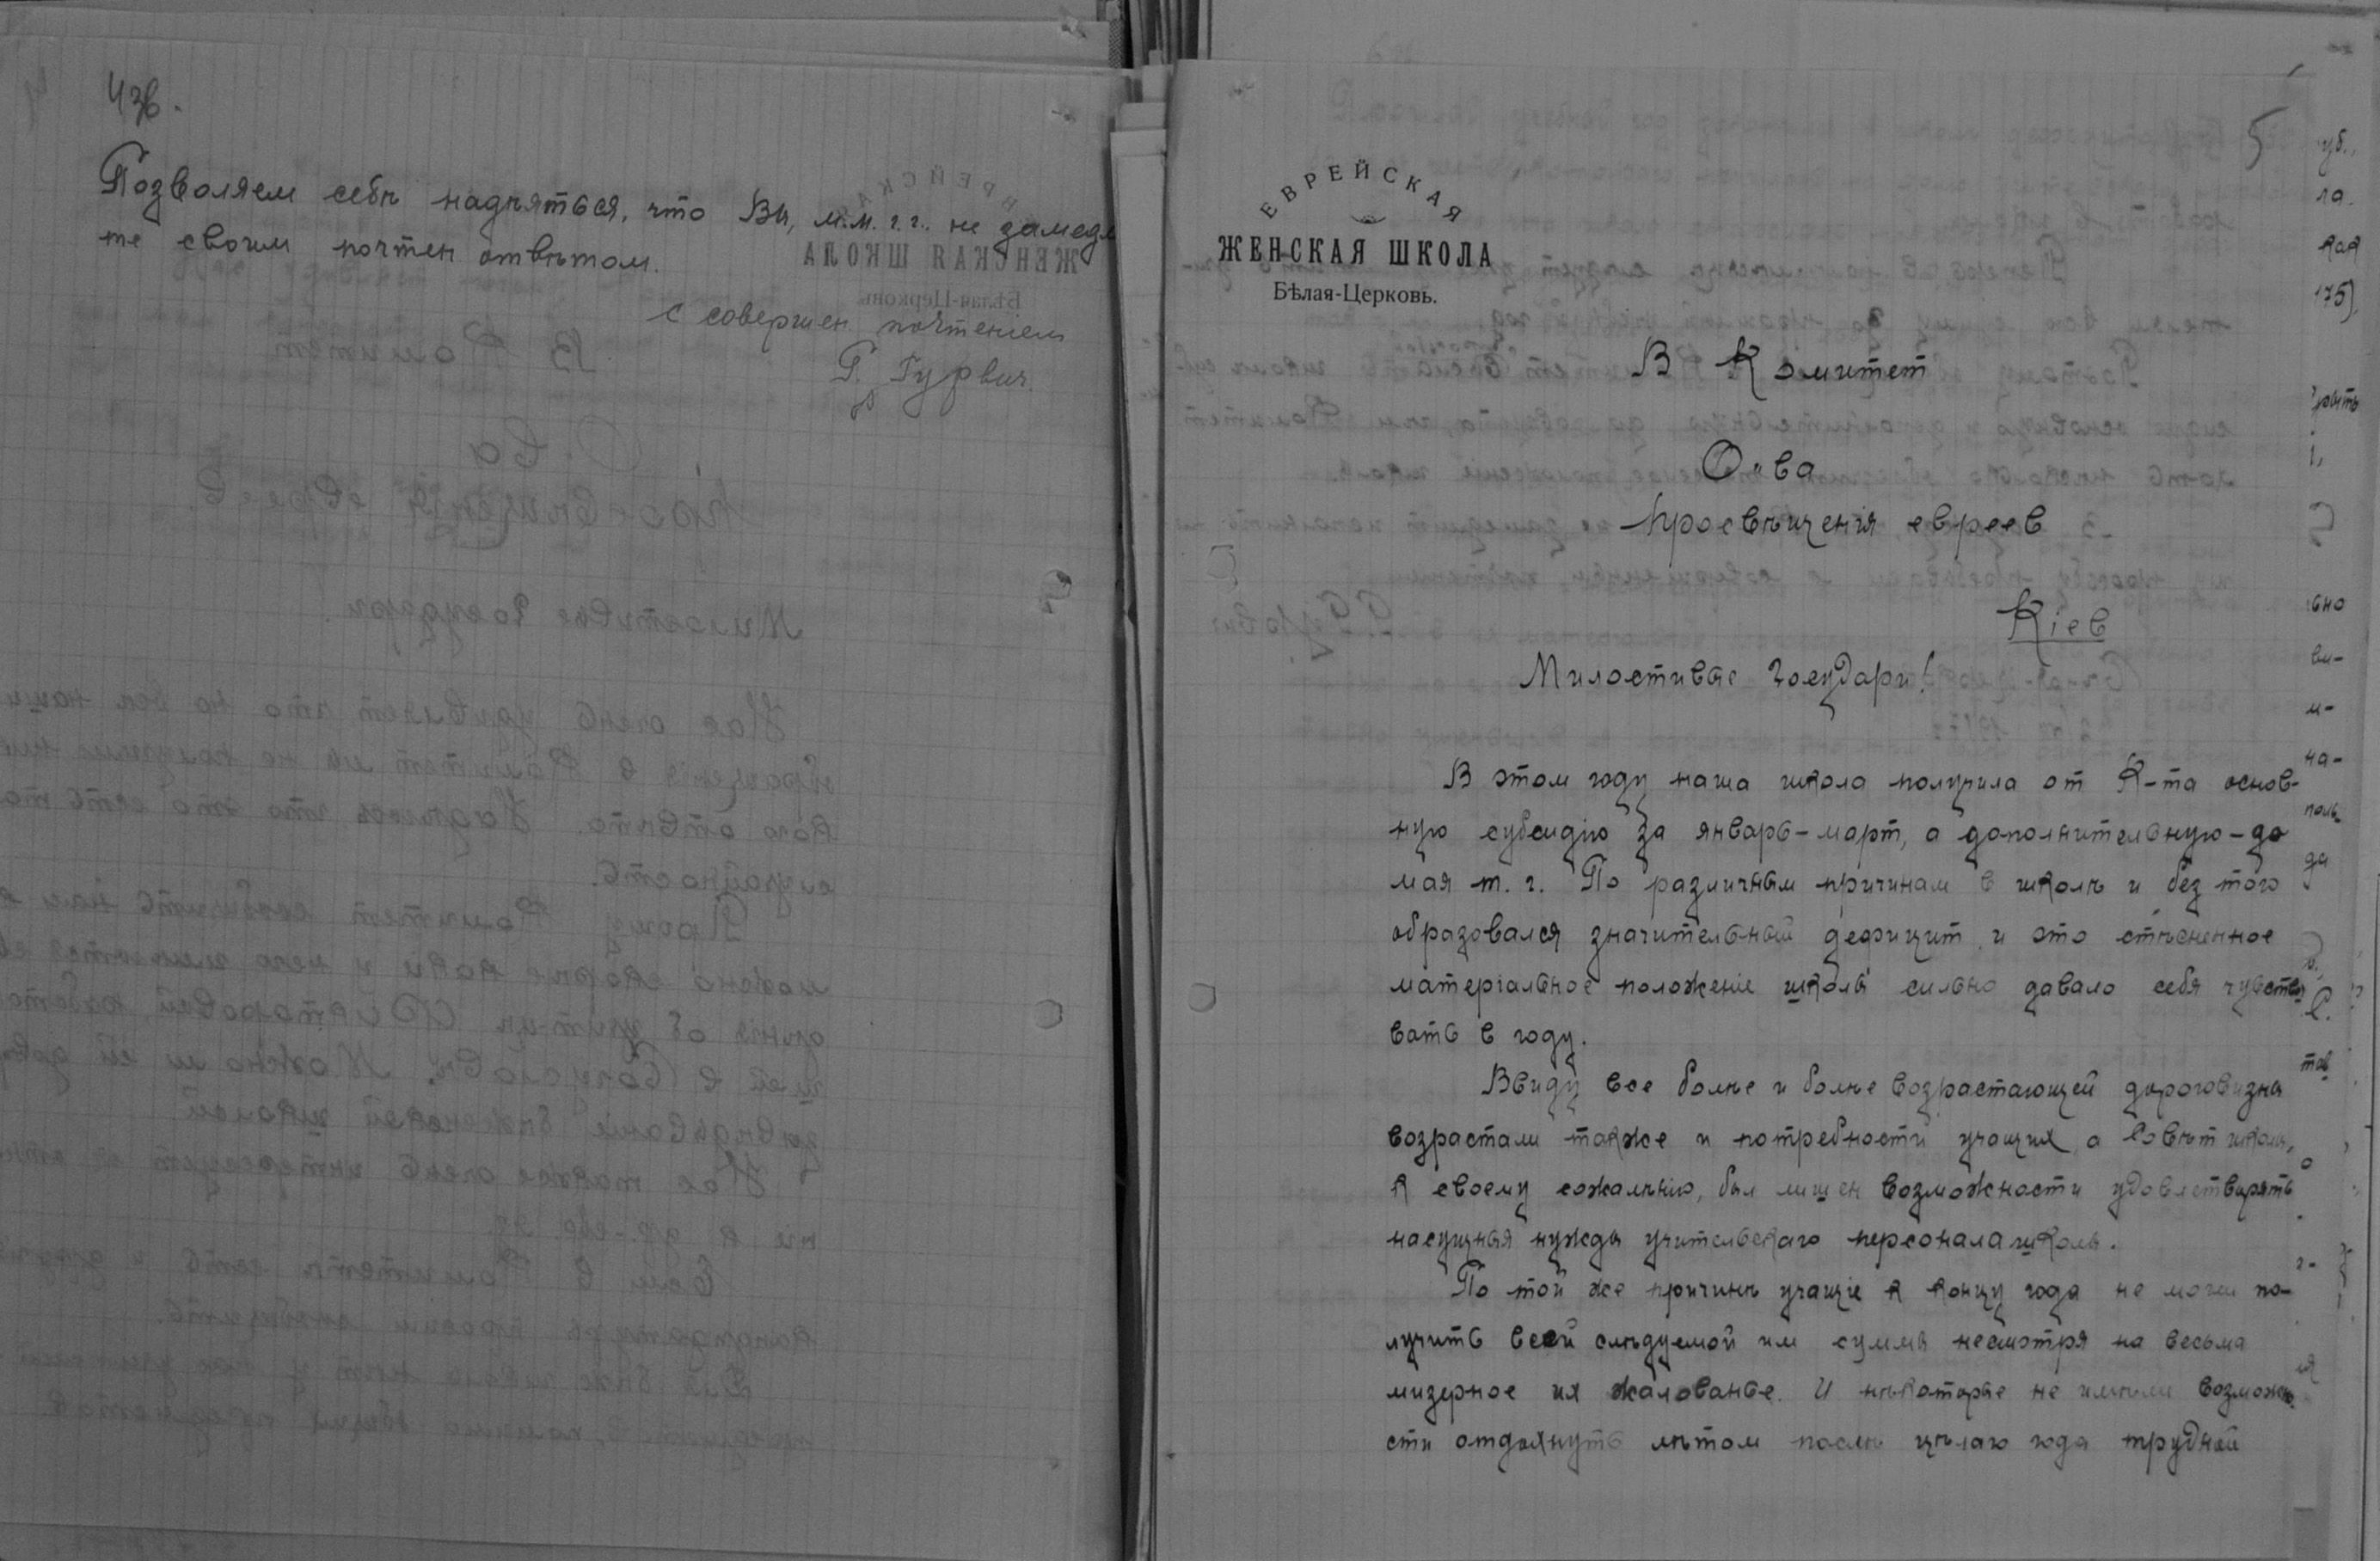 4зв.
Позволяем себѣ надѣяться, что Вы, м.м. г.г., не замедл
те своим почтен отвѣтом.
с совершен. почтеніем
Г. Гурвич.
5
ЕВРЕЙСКАЯ
ЖЕНСКАЯ ШКОЛА
Бѣлая-Церковь.
В Комитет
О-ва
просвѣщенія евреев
Кіев
Милостивые Государи!
В этом году наша школа получила от К-та основ-
ную субсидію за январь-март, а дополнительную - до
мая т. г. По различным причинам в школѣ и без того
образовался значительный дефицит и это стѣсненное
матеріальное положеніе школы сильно давало себя чувство
вать в году.
Ввиду все болѣе и болѣе возрастающей дороговизны
возрастали также и потребности учащих, а Совѣт школы,
к своему сожалѣнію, был лишен возможности удовлетворять
насущныя нужды учительскаго персонала школы.
По той же причинѣ учащіе к концу года не могли по-
лучить всей слѣдуемой им суммы несмотря на весьма
мизерное их жалованье. И нѣкоторые не имѣли возможно
сти отдохнуть лѣтом послѣ цѣлаго года трудной